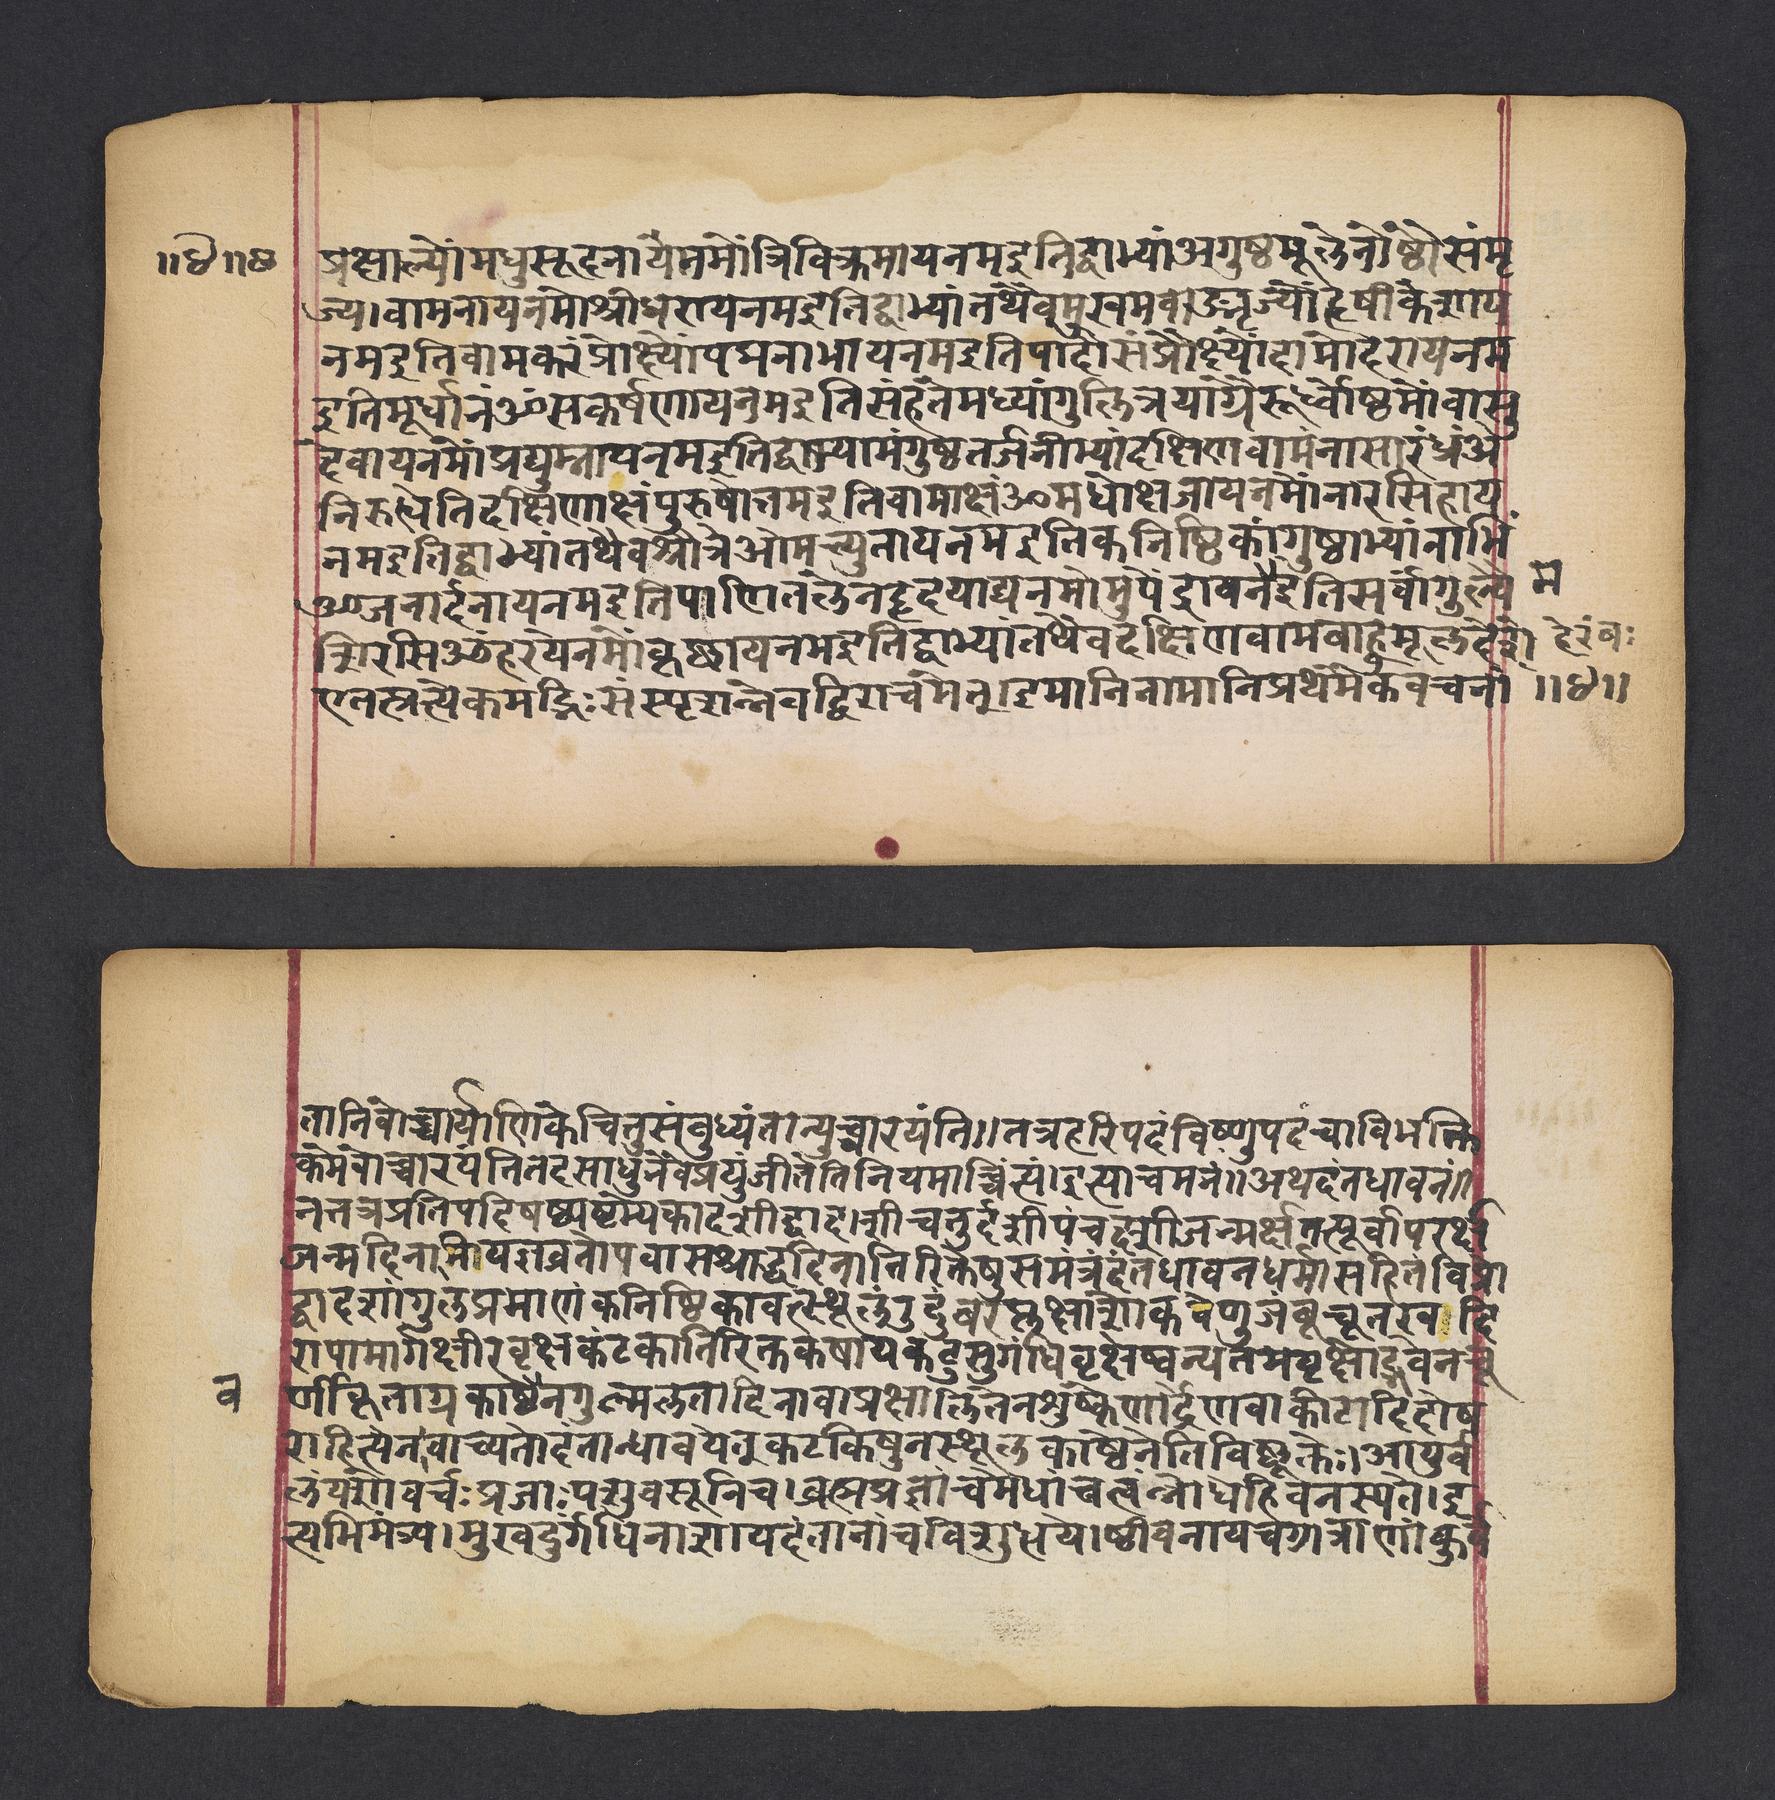 ॥४॥ष्ठ
प्रक्षाल्यों मधुसूदनाय नमों त्रिविक्रमाय नम इति द्वाभ्यां अगुष्ठमूलेनोष्ठौ संमृ
ज्य । वामनाय नमो श्रीधराय नम इति द्वाभ्यां तथैव मुखमवोङ्मृज्यों हृषीकेशाय
नम इति वामकरं प्रोक्ष्यों पद्मनाभाय नम इति पादौ संप्रोक्ष्यों दामोदराय नम
इति मूर्धानं ॐ सकर्षणाय नम इति संहतमध्यांगुलित्रयाग्रैरूर्ध्वोष्ठमों वासु
देवाय नमों प्रद्युम्नाय नम इति द्वाभ्यामंगुष्ठतर्जनीभ्यां दक्षिणवामनासारंध्रं अ
निरुत्धेति दक्षिणाक्षं पुरुषोत्तम इति वामाक्षं ॐमधोक्षजाय नमों नारसिंहाय
नम इति द्वाभ्यां तथैव श्रोत्रे ओमच्युताय नम इति कनिष्ठिकांगुष्ठाभ्यां नाभिं
ॐ जनार्दनाय नम इति पाणितलेन हृदयाद्यनमोमुपेंद्रावनैइति सर्वांगुल्यै म
शिरसि ॐ हरये नमों कृष्णाय नम इति द्वाभ्यां तथैव दक्षिणवामबाहुमूलदेशे हेरंबः
एतत्प्रत्येकमद्भिः संस्पृशन्नेवद्विराचमेत् । इमानि नामानि प्रथमैकवचनां ॥४॥
तानि वोच्चार्याणि केचित्तु संबुध्यंतान्युच्चारयंति ॥ तत्र हरिपदं विष्णुपदं चाविभक्ति
कमेवोच्चारयंति तदसाधुनैव प्रयुंजीतेति नियमाच्चिंत्यं । इत्याचमनं ॥ अथ दंतधावनं ॥
न तत्र प्रतिपदि षष्ठ्यष्टम्येकादशीद्वादशीचतुर्दशीपंचदशीजन्मर्क्षतत्पूर्वापरर्क्ष
जन्मदिनानि यज्ञव्रतोपवासश्राद्धदिनातिरिक्तेषु समंत्रं दंतधावनं धर्मासहितं विप्रो
द्वादशांगुलप्रमाणं कनिष्ठिकावत्स्थूलं उदुंबरप्लक्षाशोकवेणुजंबूचूतखादि
रापामार्गक्षीरवृक्षकंटकातिरिक्तकषायकटुसुगंधिवृक्षेष्वन्यतमवृक्षोद्भवेन चू
व र्णीकृताग्रकाष्ठेन गुल्मलतादिना वा प्रक्षालितेन शुष्केणार्द्रेण वा कीटादिदोष
राहित्येन वाच्यतो दंतान्धावयेत् कटकिषु न स्थूलकाष्ठेनेति विष्णूक्तेः । आयुर्ब
लं यशो वर्चः प्रजाः पशुवसूनि च । ब्रह्मप्रज्ञां च मेधां च त्वंन्नो धेहि वनस्पते । इ
त्यभिमंत्र्य । मुखदुर्गंधिनाशाय दंतानां च विशुद्धये । ष्ठीवनाय च गात्राणां कुर्वे